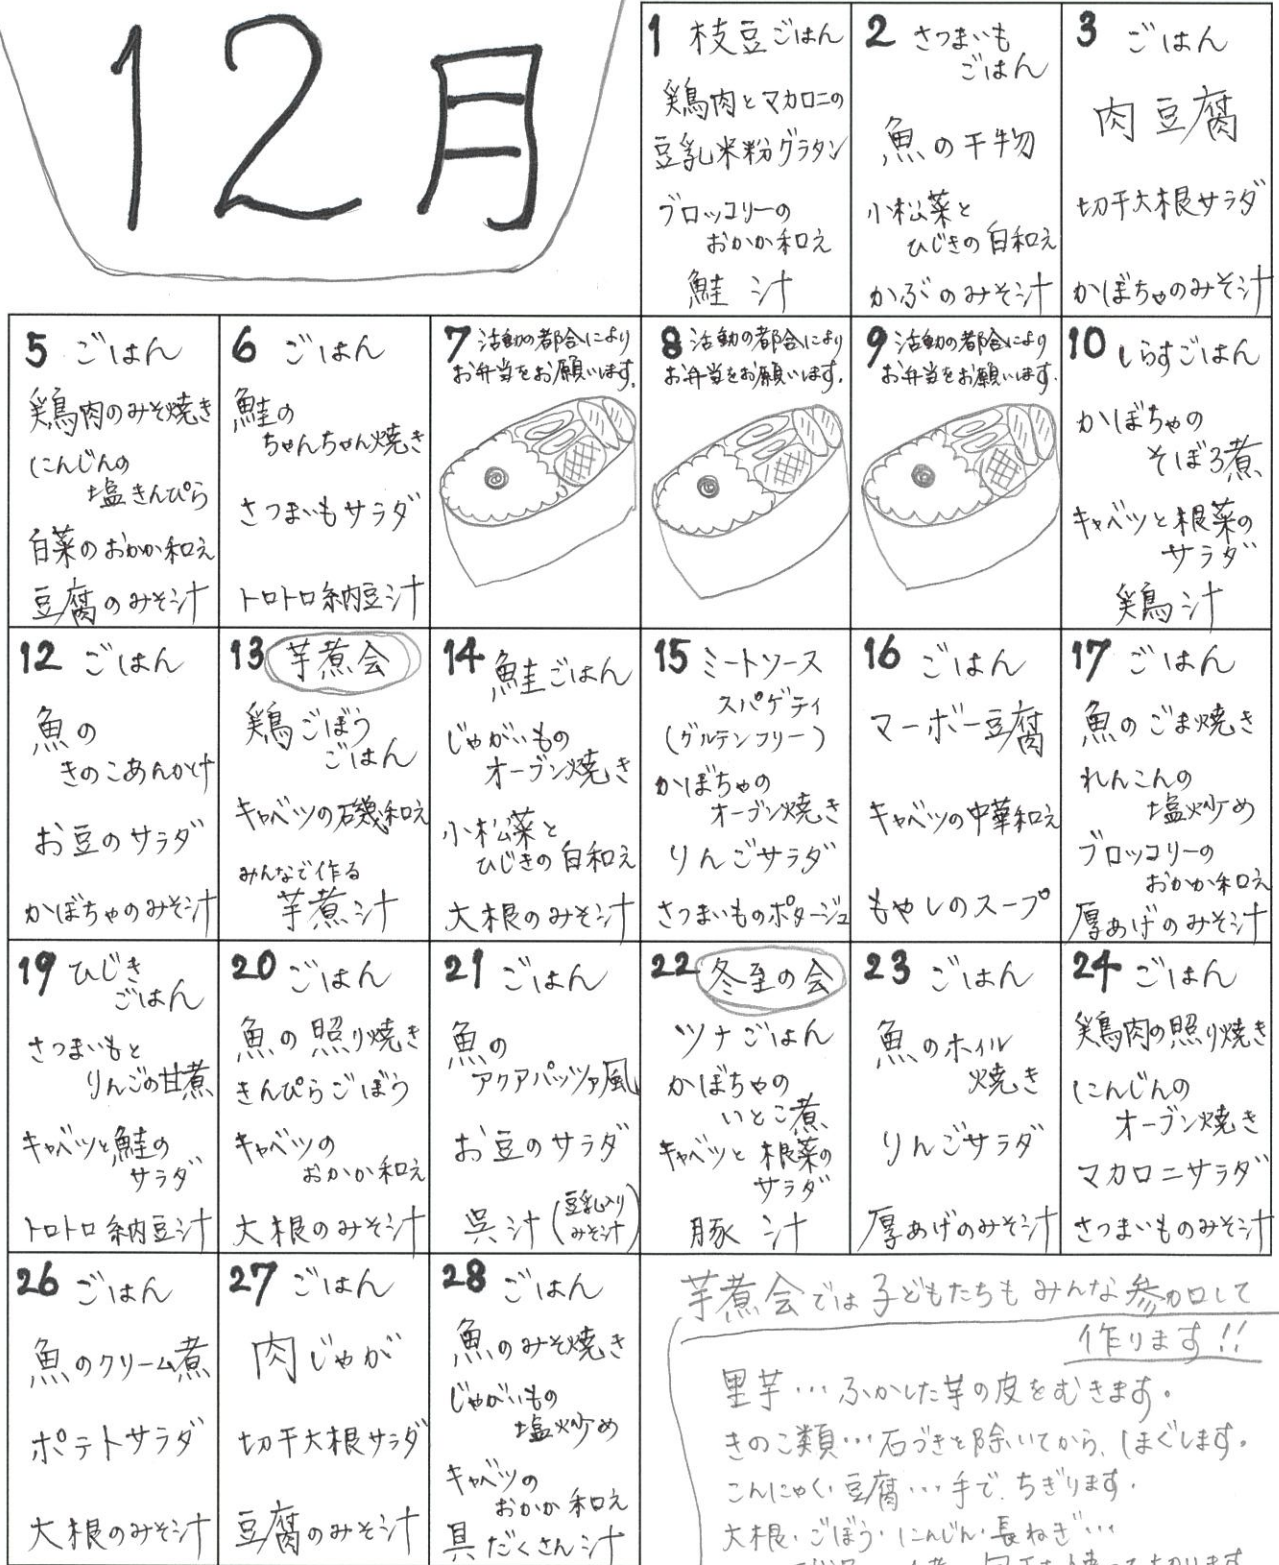 12月
1 枝豆ごはん
鶏肉とマカロニの
豆乳米粉グラタン
ブロッコリーの
おかか和え
鮭汁
2 さつまいも
ごはん
魚の干物
小松菜と
ひじきの白和え
かぶのみそ汁
3 ごはん
肉豆腐
切干大根サラダ
かぼちゃのみそ汁
5 ごはん
鶏肉のみそ焼き
にんじんの
塩きんぴら
白菜のおかか和え
豆腐のみそ汁
6 ごはん
鮭の
ちゃんちゃん焼き
さつまいもサラダ
トロトロ納豆汁
7 活動の都合により
お弁当をお願いします。
8 活動の都合により
お弁当をお願いします。
9 活動の都合により
お弁当をお願いします。
10 しらすごはん
かぼちゃの
そぼろ煮
キャベツと根菜の
サラダ
鶏汁
12 ごはん
魚の
きのこあんかけ
お豆のサラダ
かぼちゃのみそ汁
13 芋煮会
鶏ごぼう
ごはん
キャベツの磯和え
みんなで作る
芋煮汁
14 鮭ごはん
じゃがいもの
オーブン焼き
小松菜と
ひじきの白和え
大根のみそ汁
15 ミートソース
スパゲティ
(グルテンフリー)
かぼちゃの
オーブン焼き
りんごサラダ
さつまいものポタージュ
16 ごはん
マーボー豆腐
キャベツの中華和え
もやしのスープ
17 ごはん
魚のごま焼き
れんこんの
塩炒め
ブロッコリーの
おかか和え
厚あげのみそ汁
19 ひじき
ごはん
さつまいもと
りんごの甘煮
キャベツと鮭の
サラダ
トロトロ納豆汁
20 ごはん
魚の照り焼き
きんぴらごぼう
キャベツの
おかか和え
大根のみそ汁
21 ごはん
魚の
アクアパッツァ風
お豆のサラダ
呉汁(豆乳入り
みそ汁)
22 冬至の会
ツナごはん
かぼちゃの
いとこ煮
キャベツと根菜の
サラダ
豚汁
23 ごはん
魚のホイル
焼き
りんごサラダ
厚あげのみそ汁
24 ごはん
鶏肉の照り焼き
にんじんの
オーブン焼き
マカロニサラダ
さつまいものみそ汁
26 ごはん
魚のクリーム煮
ポテトサラダ
大根のみそ汁
27 ごはん
肉じゃが
切干大根サラダ
豆腐のみそ汁
28 ごはん
魚のみそ焼き
じゃがいもの
塩炒め
キャベツの
おかか和え
具だくさん汁
芋煮会では子どもたちもみんな参加して
作ります!!
里芋…ふかした芋の皮をむきます。
きのこ類…石づきを除いてから、ほぐします。
こんにゃく・豆腐…手で、ちぎります。
大根・ごぼう・にんじん・長ねぎ…